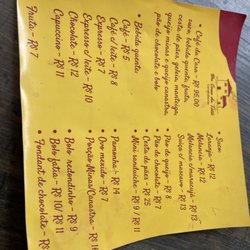 • Café da Casa - R$ 95,00
suco, bebida quente, fruta,
cesta de pães, geleia, manteiga,
queijo minas e queijo canastra,
pão de chocolate e bolo
• Bebida quente
Café - R$
Café c/ leite - R$ 8
Espresso - R$
Espresso c/ leite - R$ 10
Chocolate - R$ 12
Capuccino - R$ 11
Fruta - R$ 7
• Suco
Laranja - R$ 12
Melancia - R$ 12
Melancia c/maracujá - R$ 13
Suíço c/ - R$ 13
• Pão de queijo - R$ 8
• Cesta de pães - R$ 25
• Mini sanduíche - R$ 9 / R$ 11
• Pamonha - R$ 14
• Ovo mexido - R$ 7
• Porção Minas/Canastra - R$ 14
• Bolo redondinho - R$ 9
• Bolo fatia - R$ 10/ R$ 11
• Fondant de chocolate - R$